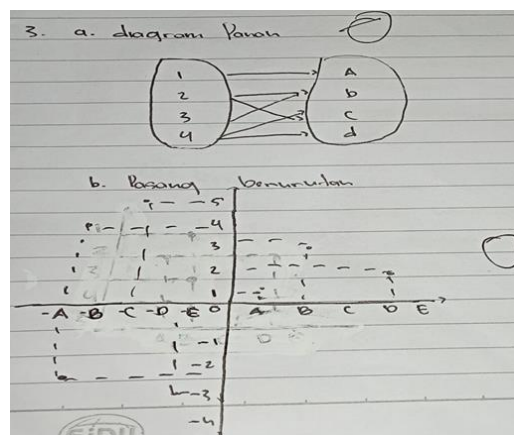 3. a. diagram Panah
1 A
2 b
3 c
4 d
b. Pasang berurutan
5
4
3
2
1
-A -B -C -D -E 0 A B C D E
-1
-2
-3
-4
SIDU